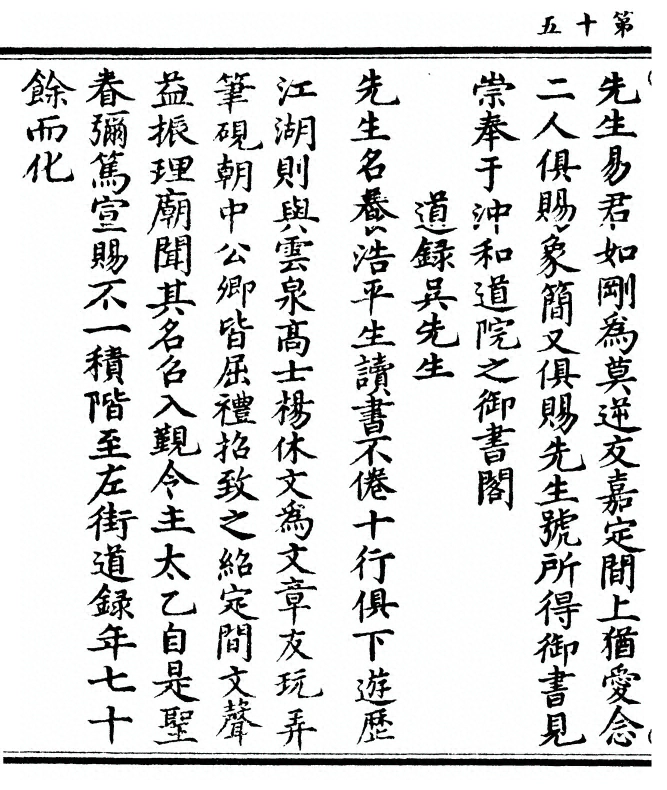 第十五
先生易君如剛爲莫逆友嘉定間上猶愛念
二人俱賜象簡又俱賜先生號所得御書見
崇奉于沖和道院之御書閣
道録吳先生
先生名養浩平生讀書不倦十行俱下遊歷
江湖則與雲泉高士楊休文爲文章友玩弄
筆硯朝中公卿皆屈禮招致之紹定間文聲
益振理廟聞其名召入覲令主太乙自是聖
眷彌篤宣賜不一積階至左街道録年七十
餘而化